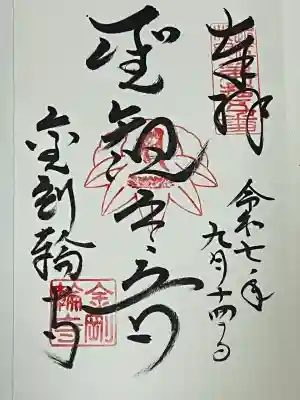 奉拝
令和七年
九月十四日
聖観
金剛輪寺
金剛
輪寺